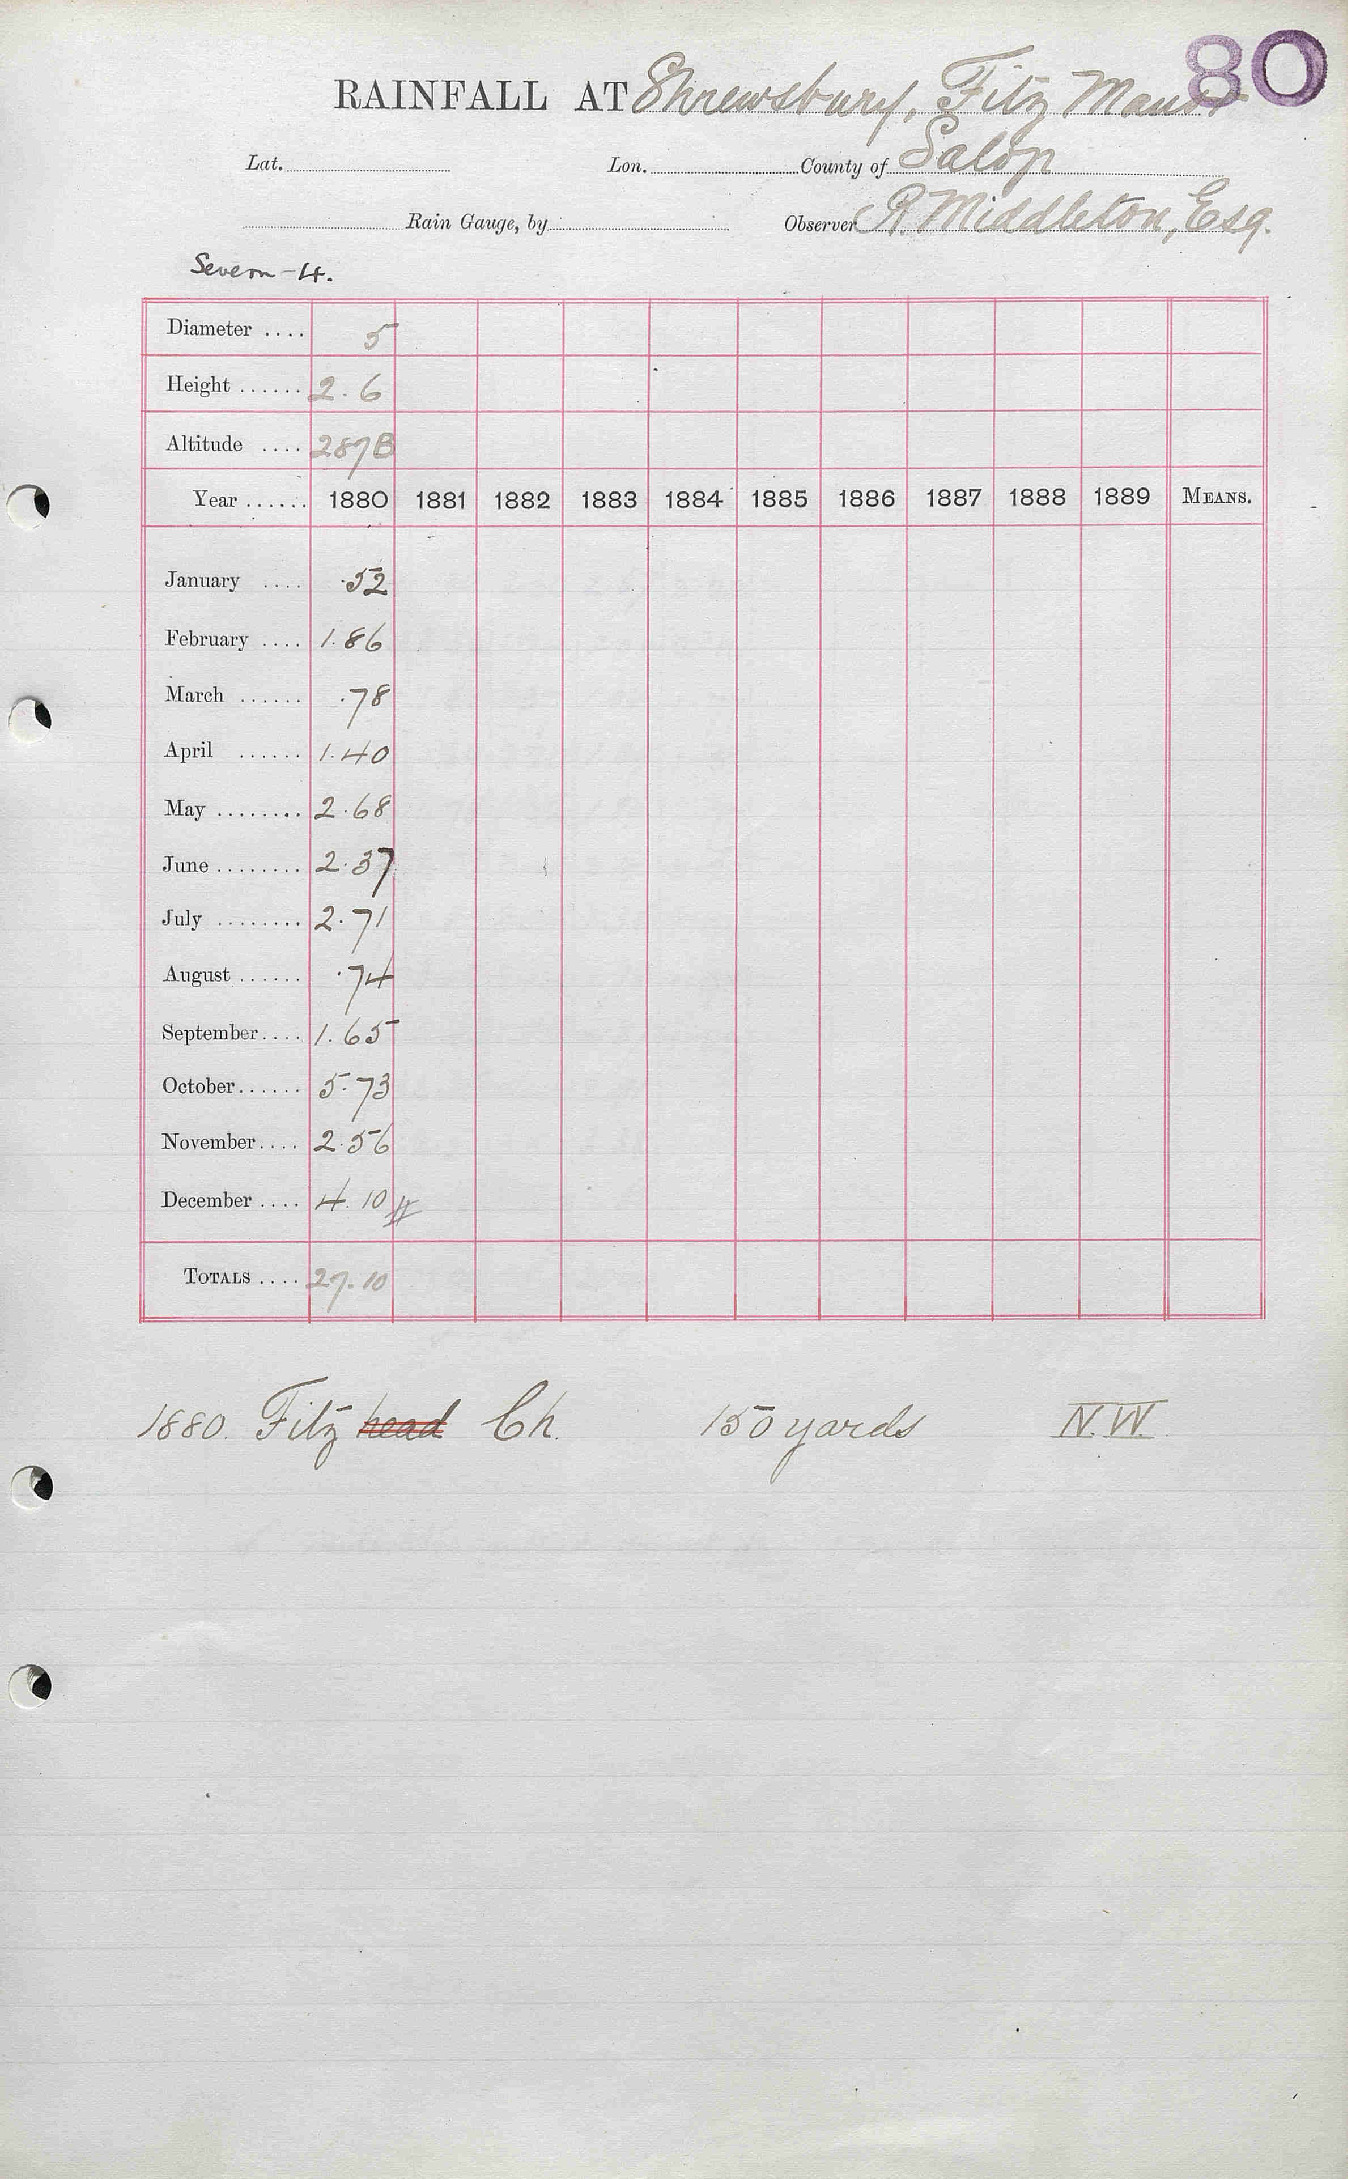 80
RAINFALL AT Shrewsbury, Fitz Manor
Lat. Lon. County of Salop
Rain Gauge, by Observer R. Middleton, Esq.
Severn - 4.
Diameter .... 5
Height ...... 2.6
Altitude .... 287B
Year ...... 1880 1881 1882 1883 1884 1885 1886 1887 1888 1889 MEANS.
January .... .52
February .... 1.86
March ...... .78
April ...... 1.40
May ........ 2.68
June ........ 2.37
July ........ 2.71
August ...... .74
September .... 1.65
October ...... 5.73
November .... 2.56
December .... 4.10
TOTALS .... 27.10
1880. Fitz head Ch. 150 yards N.W.